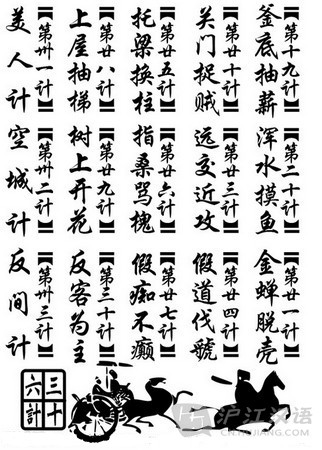 【第十九计】
釜底抽薪
【第二十计】
浑水摸鱼
【第廿一计】
金蝉脱壳
【第廿十计】
关门捉贼
【第廿三计】
远交近攻
【第廿四计】
假道伐號
【第廿五计】
托梁换柱
【第廿六计】
指桑骂槐
【第廿七计】
假痴不癫
【第廿八计】
上屋抽梯
【第廿九计】
树上开花
【第三十计】
反客为主
【第卅一计】
美人计
【第卅二计】
空城计
【第卅三计】
反间计
三十
六計
沪江汉语
CN.HUJIANG.COM